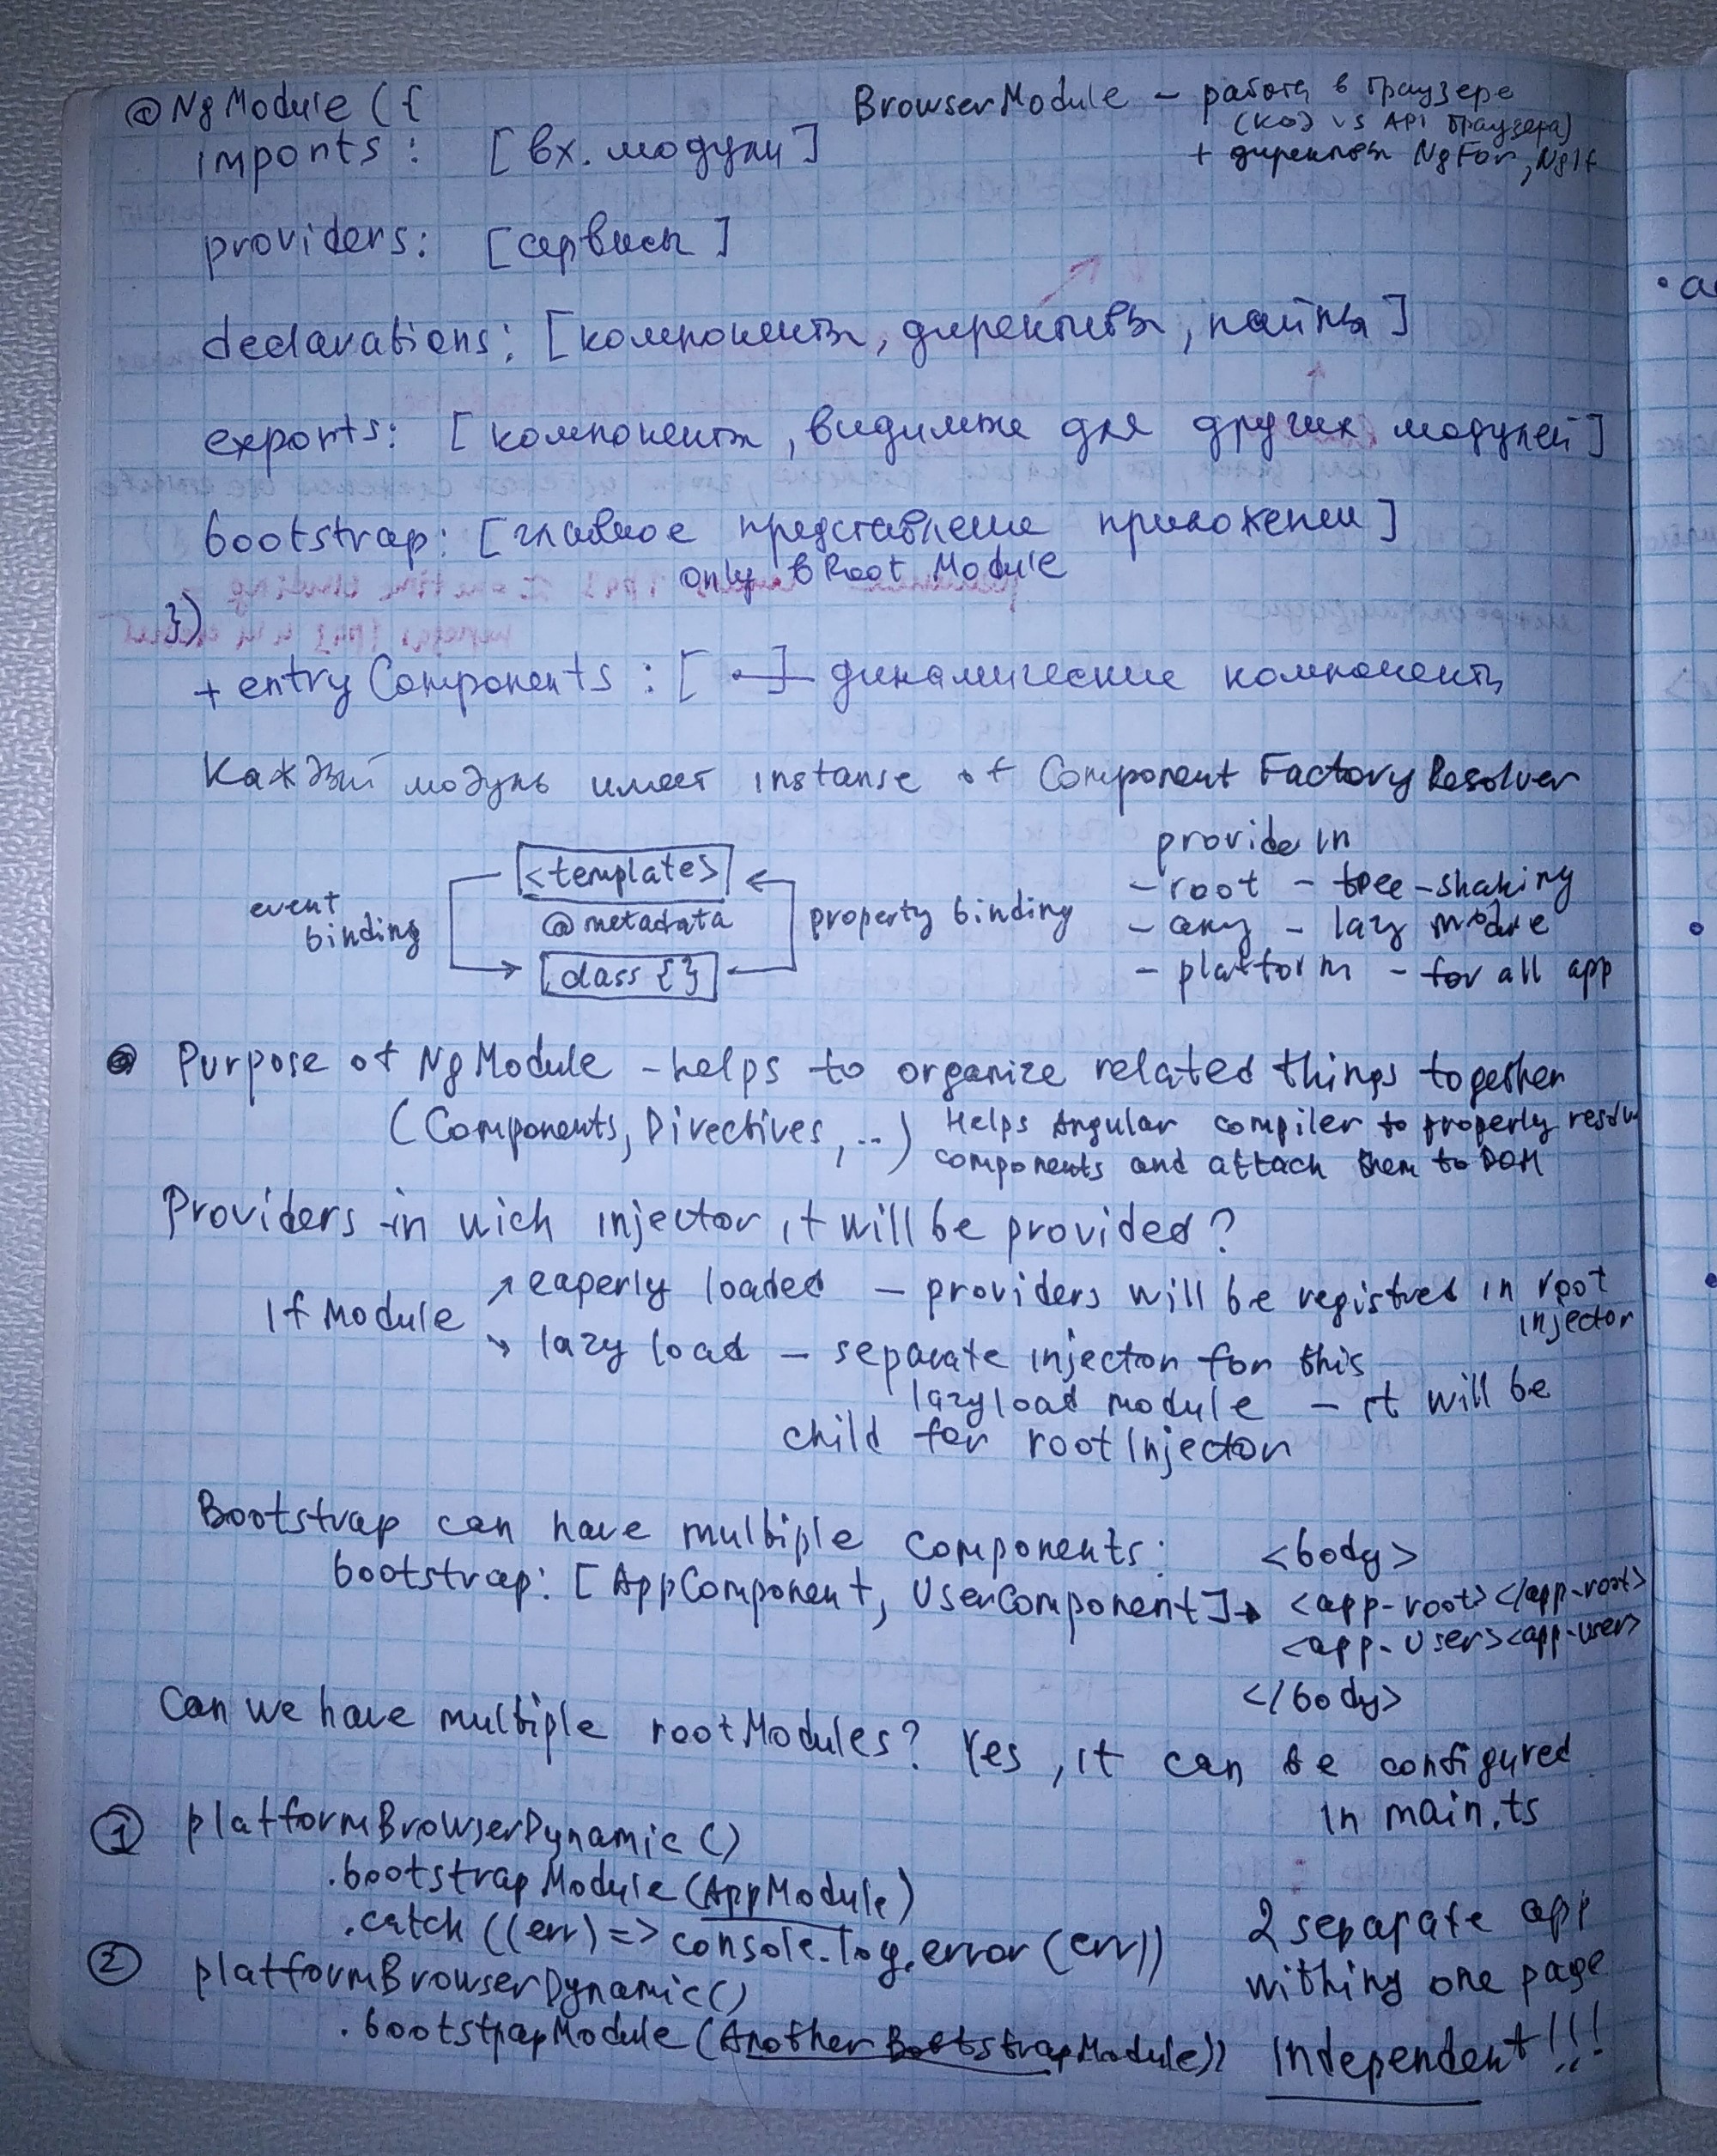 @NgModule ({
imports: [вх. модули]
BrowserModule – работа в браузере
(код vs API браузера)
+ директивы NgFor, NgIf
providers: [сервисы]
declarations: [компоненты, директивы, пайпы]
exports: [компоненты, видимые для других модулей]
bootstrap: [главное представление приложения]
only в Root Module
})
+ entryComponents: [ ] динамические компоненты
Каждый модуль имеет instanse of Component Factory Resolver
event
binding
<template>
@metadata
class {}
property binding
provide in
– root – tree-shaking
– any – lazy module
– platform – for all app
Purpose of NgModule – helps to organize related things together
(Components, Directives, ..) Helps Angular compiler to properly resolv
components and attach them to DOM
Providers in wich injector it will be provided?
If Module
↗ eaperly loaded – providers will be registred in root
injector
↘ lazy load – separate injector for this
lazyload module – it will be
child for rootInjector
Bootstrap can have multiple components:
bootstrap: [AppComponent, UserComponent] →
<body>
<app-root></app-root>
<app-user><app-user>
</body>
Can we have multiple rootModules? Yes, it can be configured
in main.ts
① platformBrowserDynamic()
.bootstrapModule(AppModule)
.catch((err) => console.log.error(err))
② platformBrowserDynamic()
.bootstpapModule(AnotherBootstrapModule))
2 separate app
withing one page
Independent!!!